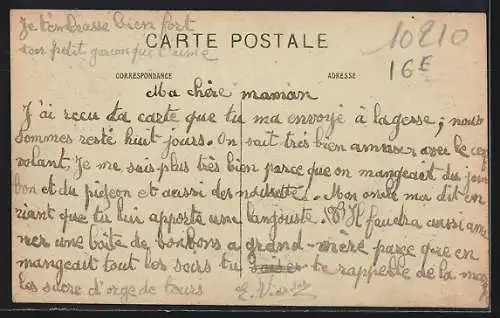 Je t'embrasse bien fort
ton petit garçon qui t'aime
CARTE POSTALE
10210
16E
CORRESPONDANCE
ADRESSE
Ma chère maman
J'ai recu ta carte que tu ma envoyé à la gesse; nous
sommes resté huit jours. On sait très bien amuser avec le cerf
volant, Je me suis plus très bien parce que on mangeait du jam
bon et du pigeon et aussi des noisette. Mon oncle ma dit en
riant que tu lui apporte une langouste. Il faudra aussi am
ner une boite de bonbons a grand-mère parce que en
mangeait tout les soirs tu te rappelle de la
les sucre d'orge de tours